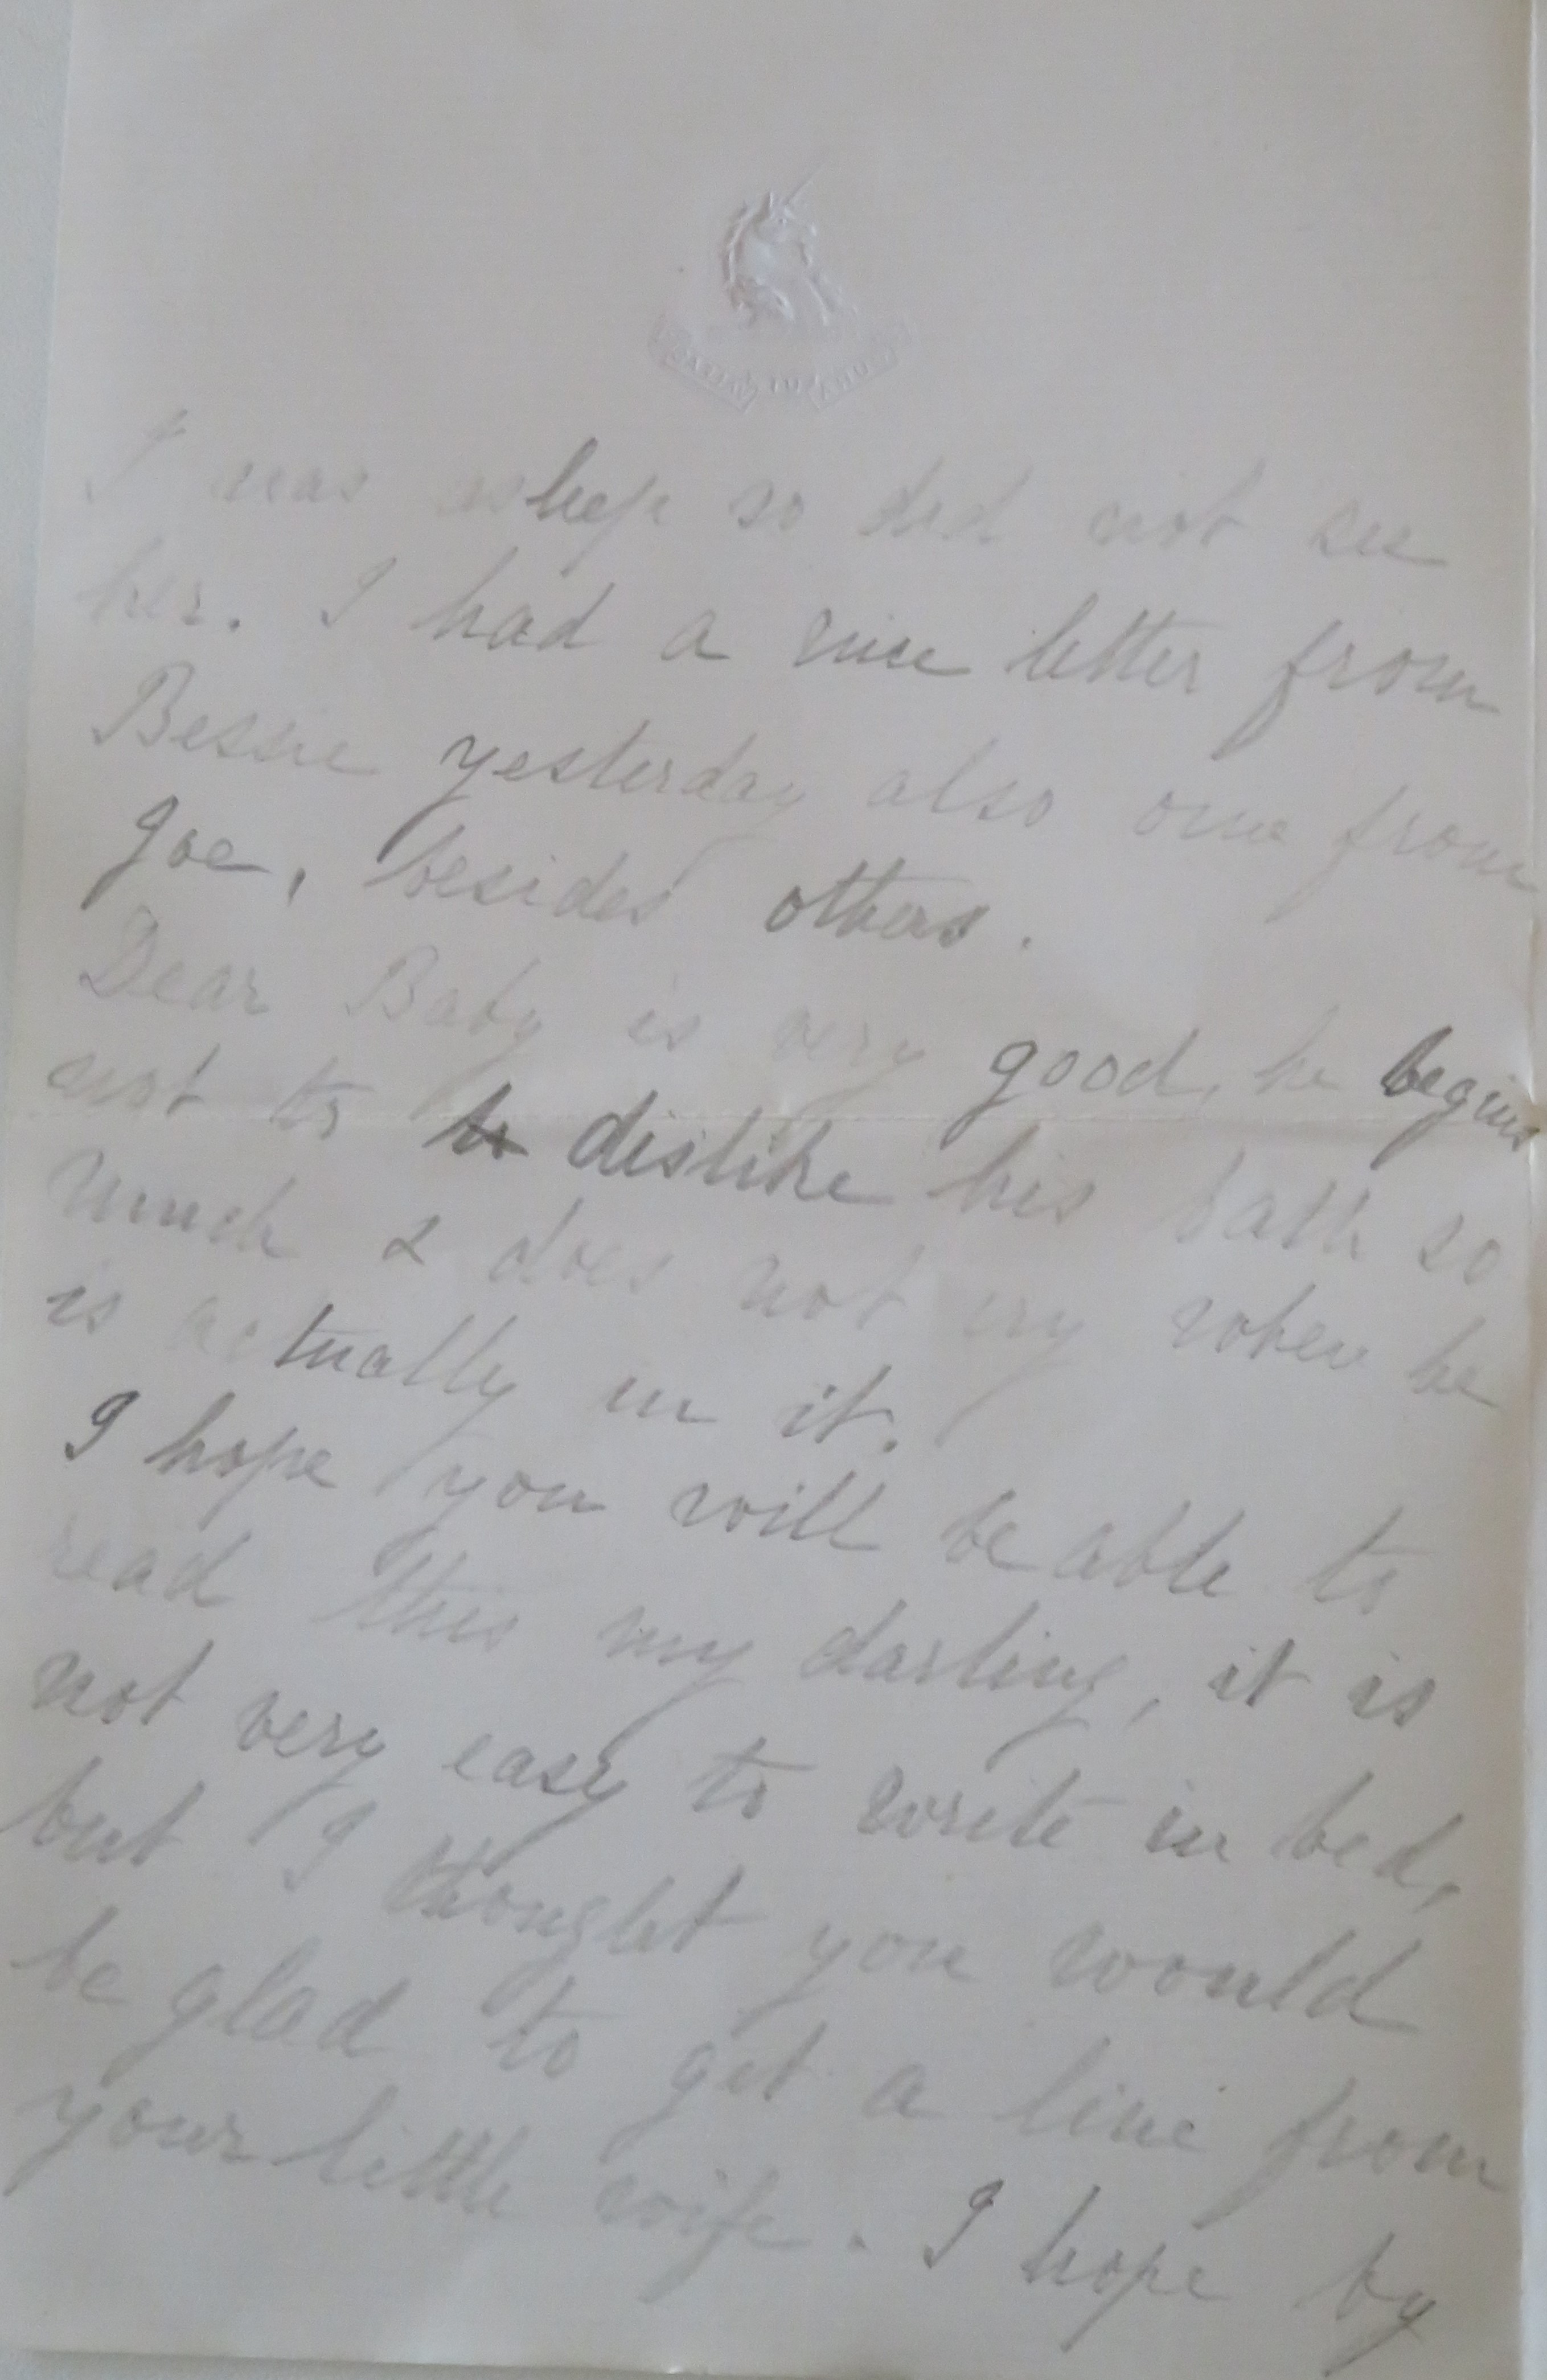 I was asleep so did not see
her. I had a nice letter from
Bessie yesterday also one from
Joe, besides others.
Dear Baby is very good, he begins
not to to dislike his bath so
much & does not cry when he
is actually in it.
I hope you will be able to
read this my darling, it is
not very easy to write in bed,
but I thought you would
be glad to get a line from
your little wife. I hope by